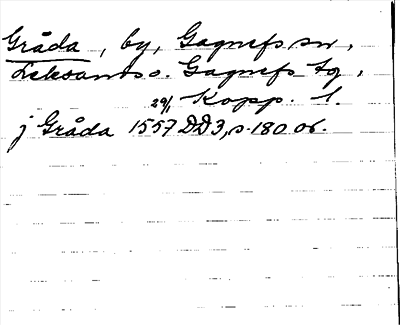 Gråda, by, Gagnefs sn,
Leksands o. Gagnefs tg,
29/1 Kopp. l.
j Gråda 1557 DD3, s. 180 or.